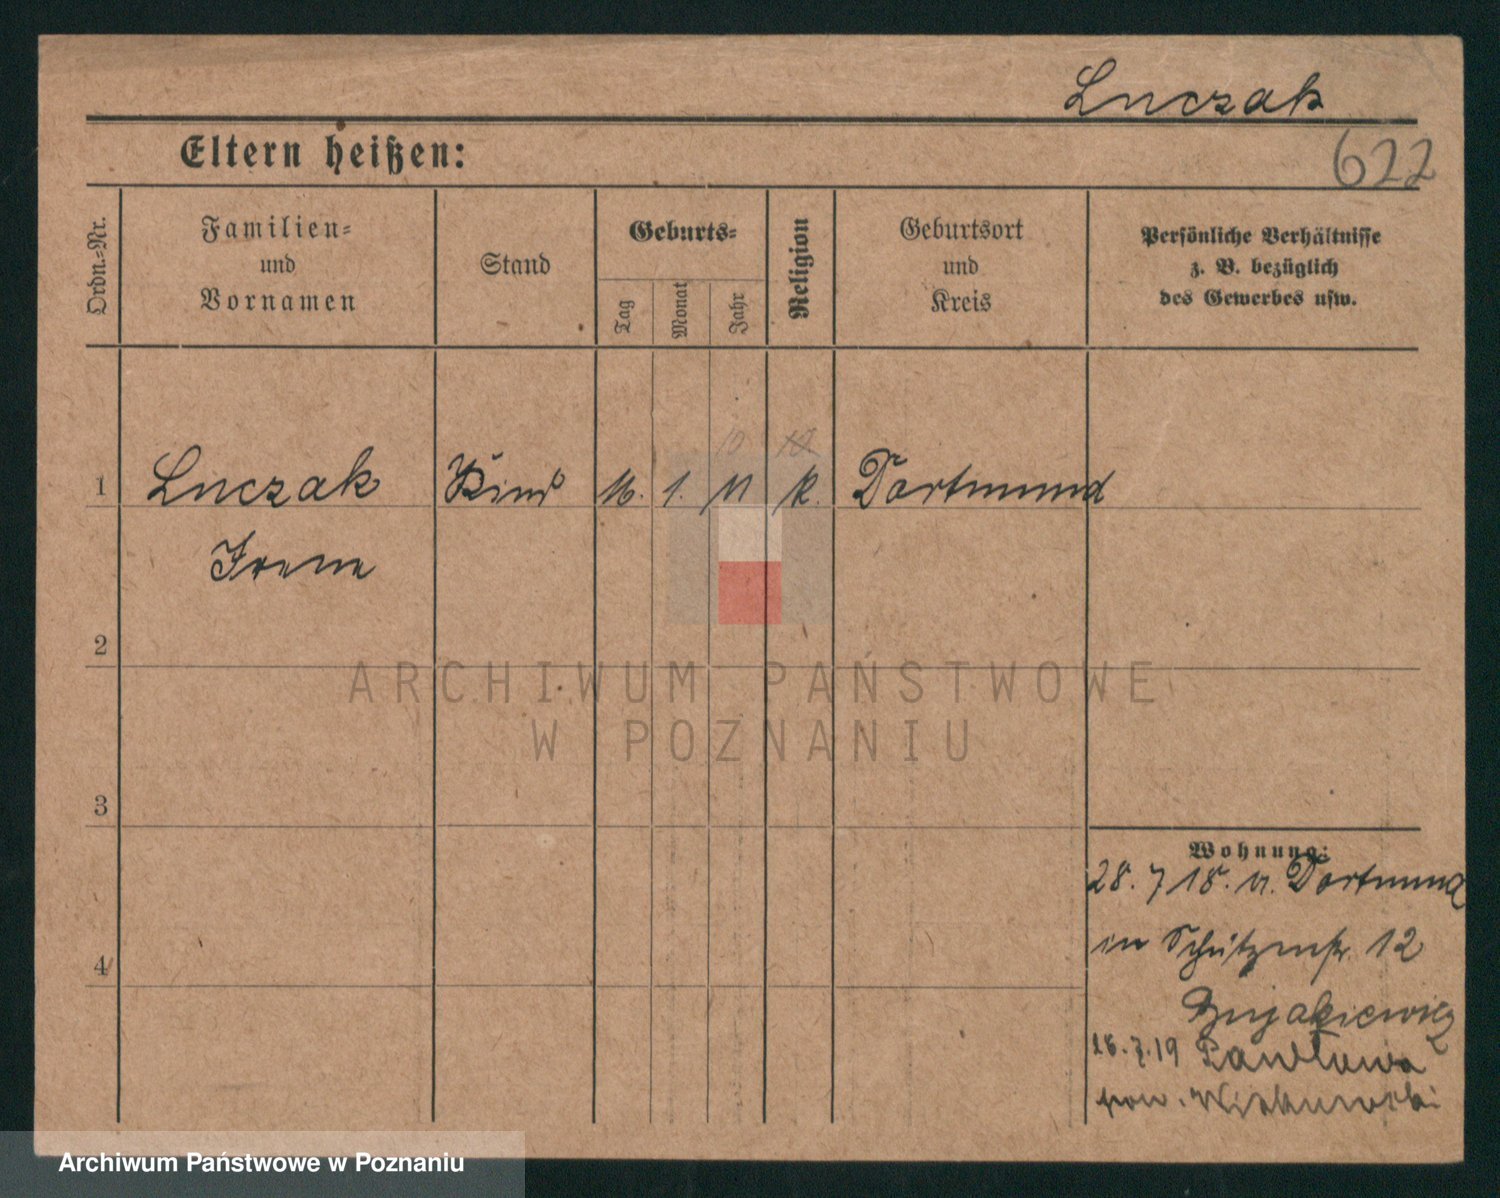 Luczak
Eltern heißen:
622
Ordn.-Nr.
Familien-
und
Vornamen
Stand
Geburts-
Tag
Monat
Jahr
Religion
Geburtsort
und
Kreis
Persönliche Verhältnisse
z. B. bezüglich
des Gewerbes usw.
1 Luczak Kind 16. 1. 11 k. Dortmund
Irene
2
3
4
Wohnung:
28. 7 18. v. Dortmund
in Schützenstr. 12
16.7.19
pow.
ARCHIWUM PAŃSTWOWE
W POZNANIU
Archiwum Państwowe w Poznaniu